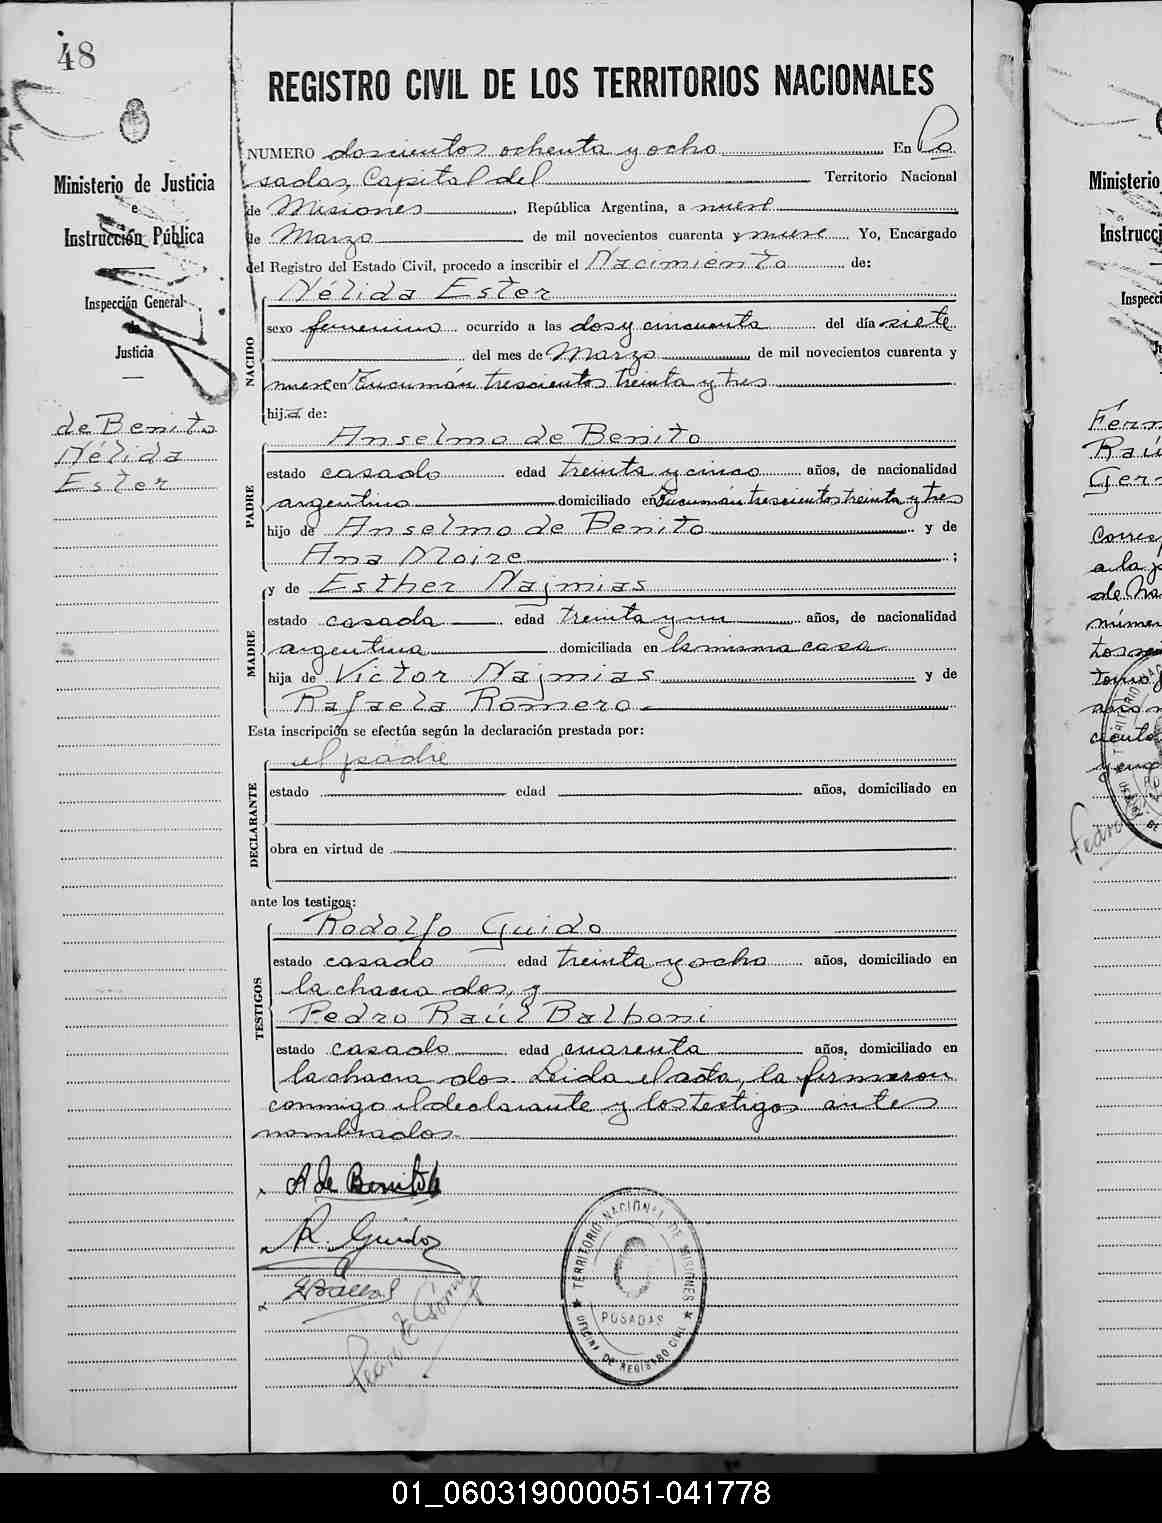 48
REGISTRO CIVIL DE LOS TERRITORIOS NACIONALES
Ministerio de Justicia
e
Instrucción Pública
Inspección General
de
Justicia
de Benito
Nélida
Ester
NUMERO doscientos ochenta y ocho En Po
sadas, Capital del Territorio Nacional
de Misiones, República Argentina, a nueve
de Marzo de mil novecientos cuarenta y nueve Yo, Encargado
del Registro del Estado Civil, procedo a inscribir el Nacimiento de:
NACIDO
Nélida Ester
sexo femenino ocurrido a las dos y cincuenta del día siete
del mes de Marzo de mil novecientos cuarenta y
nueve en Tucumán trescientos treinta y tres
hija de:
PADRE
Anselmo de Benito
estado casado edad treinta y cinco años, de nacionalidad
argentino domiciliado en Tucumán trescientos treinta y tres
hijo de Anselmo de Benito y de
Ana Moire ;
MADRE
y de Esther Najmias
estado casada edad treinta y un años, de nacionalidad
argentina domiciliada en la misma casa
hija de Victor Najmias y de
Rafaela Romero
Esta inscripción se efectúa según la declaración prestada por:
DECLARANTE
el padre
estado edad años, domiciliado en
obra en virtud de
ante los testigos:
TESTIGOS
Rodolfo Guido
estado casado edad treinta y ocho años, domiciliado en
la chacra dos, y
Pedro Raúl Balboni
estado casado edad cuarenta años, domiciliado en
la chacra dos. Leida el acta, la firmaron
conmigo el declarante y los testigos antes
nombrados.
A de Benito
R. Guido
TERRITORIO NACIONAL DE MISIONES
POSADAS
OFICINA DE REGISTRO CIVIL
Ministerio
Instrucci
Inspecci
Ju
Fern
Raú
Ger
Corres
a la
de Na
númer
tos
tomo
año
ciento
Pedro
01_060319000051-041778